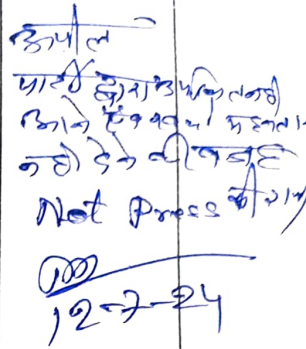 अपील
पार्टी द्वारा उपस्थित नही
आने एवं
नही देने की वजह
Not Press की
12-7-24